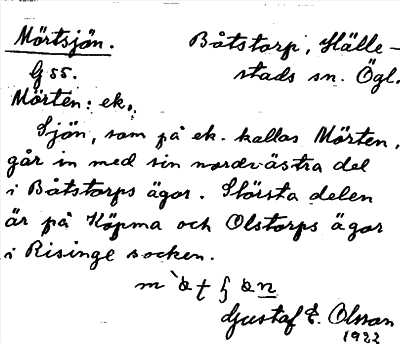 Mörtsjön. Båtstorp, Hälle-
G 55. stads sn. Ögl.
Mörten: ek.
Sjön, som på ek. kallas Mörten,
går in med sin nordvästra del
i Båtstorps ägor. Största delen
är på Köpma och Olstorps ägor
i Risinge socken.
Gustaf E. Olsson
1922